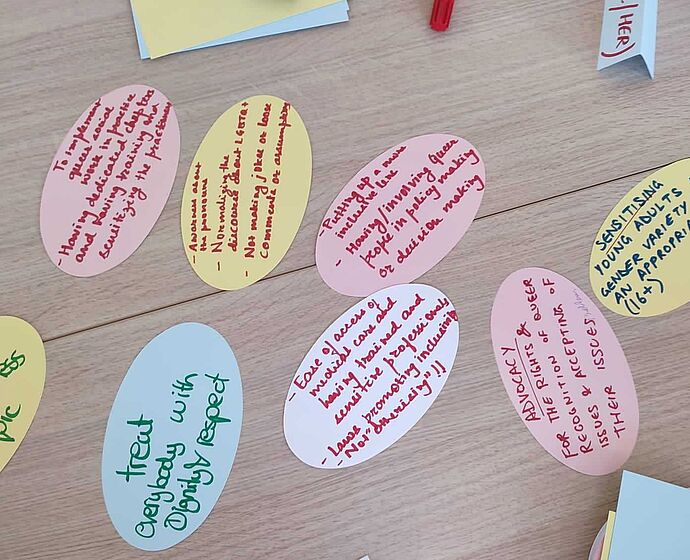 - To implement
queer social
work in practice
- Having dedicated chapters
and having training and
sensitizing the practitioners
- Awarness about
the pronound
- Normalizing the
discourse about LGBTQ+
- Not making jokes or loose
comments or assumptions
- Putting up a more
inclusive law
- Having/involving Queer
people in policy making
or decision making
SENSITISING
YOUNG ADULTS
GENDER VARIETY
AN APPROPRIA
(16+)
- Ease of access of
medical care and
having trained and
sensitive professionals
- Laws promoting inclusivity
- Not "otherising"!!
ADVOCACY &
THE RIGHTS OF QUEER
FOR RECOGNITION OF
ISSUES & ACCEPTING
THEIR ISSUES
treat
everybody with
Dignity & respect
/HER)